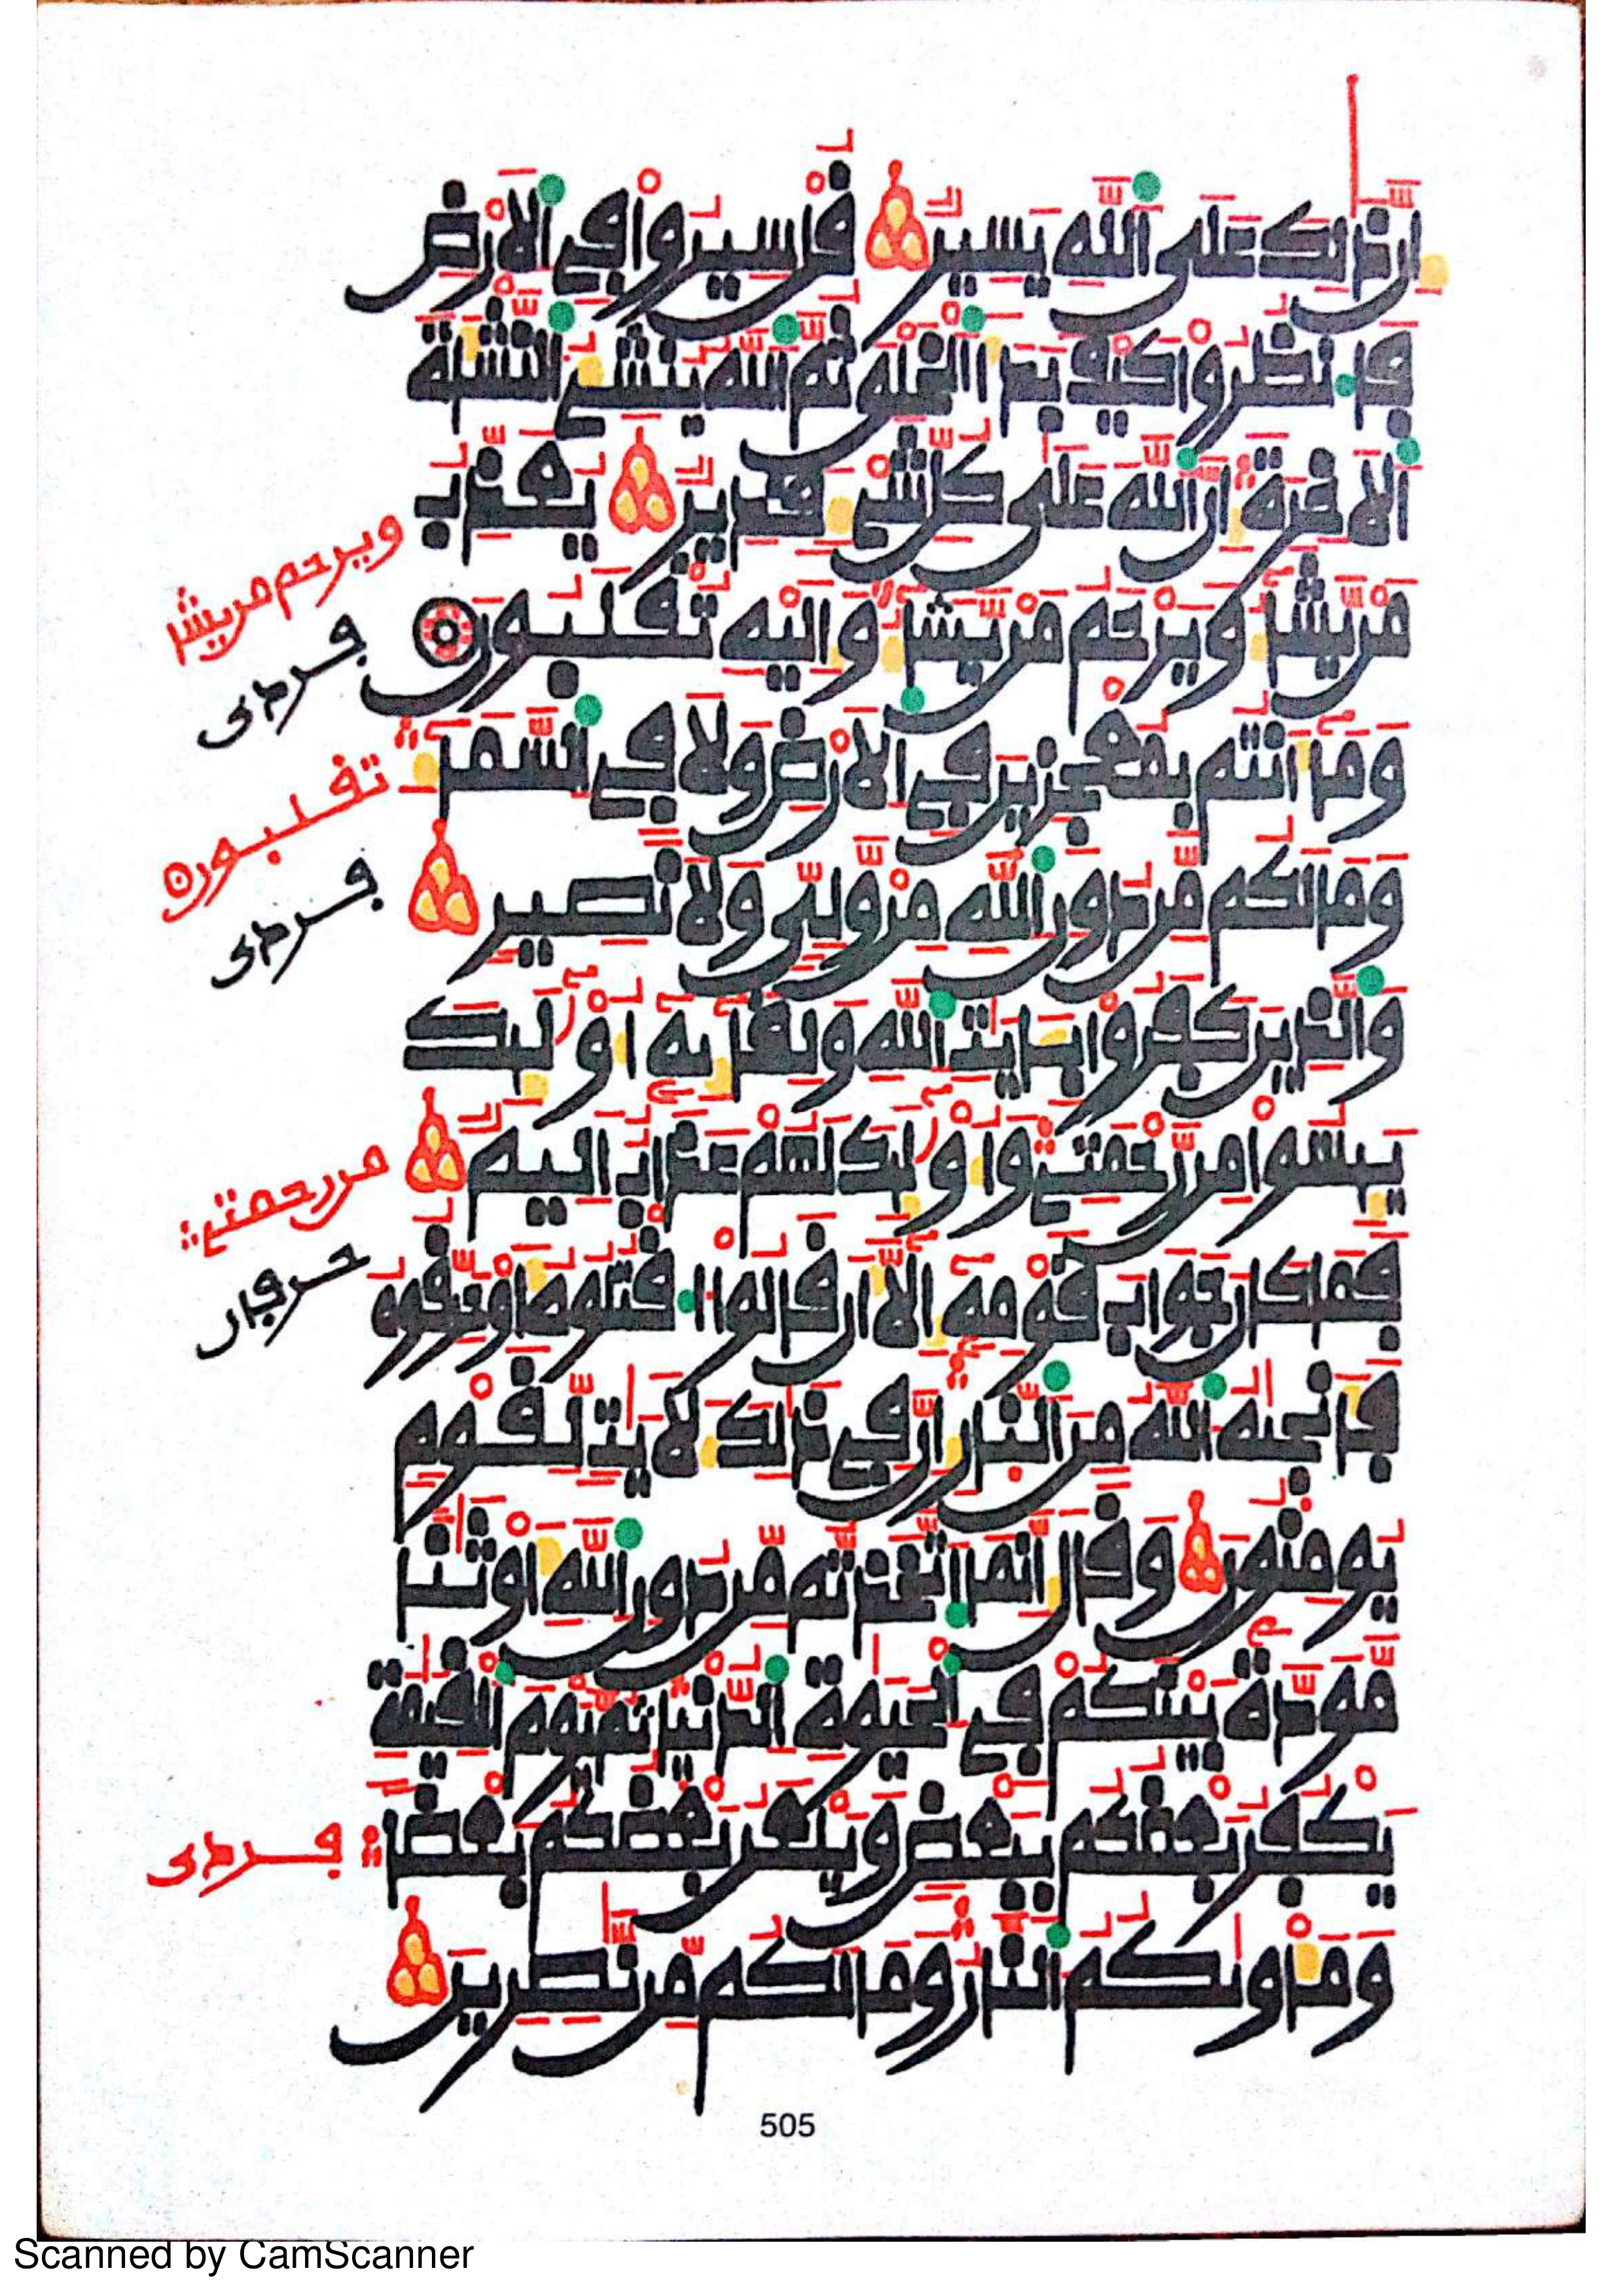 إِنَّ ذَٰلِكَ عَلَى ٱللَّهِ يَسِيرٌ قُلْ سِيرُوا۟ فِى ٱلْأَرْضِ
فَٱنظُرُوا۟ كَيْفَ بَدَأَ ٱلْخَلْقَ ثُمَّ ٱللَّهُ يُنشِئُ ٱلنَّشْأَةَ
ٱلْأَخِرَةَ إِنَّ ٱللَّهَ عَلَىٰ كُلِّ شَىْءٍ قَدِيرٌ يُعَذِّبُ
مَنْ يَّشَآءُ وَيَرْحَمُ مَنْ يَّشَآءُ وَإِلَيْهِ تُقْلَبُونَ
وَمَآ أَنتُم بِمُعْجِزِينَ فِى ٱلْأَرْضِ وَلَا فِى ٱلسَّمَآءِ
وَمَا لَكُم مِّن دُونِ ٱللَّهِ مِنْ وَّلِىٍّ وَلَا نَصِيرٍ
وَٱلَّذِينَ كَفَرُوا۟ بِـَٔايَٰتِ ٱللَّهِ وَلِقَآئِهِۦٓ أُو۟لَٰٓئِكَ
يَئِسُوا۟ مِن رَّحْمَتِى وَأُو۟لَٰٓئِكَ لَهُمْ عَذَابٌ أَلِيمٌ
فَمَا كَانَ جَوَابَ قَوْمِهِۦٓ إِلَّآ أَن قَالُوا۟ ٱقْتُلُوهُ أَوْ حَرِّقُوهُ
فَأَنجَىٰهُ ٱللَّهُ مِنَ ٱلنَّارِ إِنَّ فِى ذَٰلِكَ لَأَيَٰتٍ لِّقَوْمٍ
يُومِنُونَ وَقَالَ إِنَّمَا ٱتَّخَذتُّم مِّن دُونِ ٱللَّهِ أَوْثَٰنًا
مَّوَدَّةً بَيْنَكُمْ فِى ٱلْحَيَوٰةِ ٱلدُّنْيَا ثُمَّ يَوْمَ ٱلْقِيَٰمَةِ
يَكْفُرُ بَعْضُكُم بِبَعْضٍ وَيَلْعَنُ بَعْضُكُم بَعْضًا
وَمَأْوَىٰكُمُ ٱلنَّارُ وَمَا لَكُم مِّن نَّٰصِرِينَ
ويرحم من يشا
فردى
تقلبون
فردى
من رحمتى
حرفان
فردى
505
Scanned by CamScanner